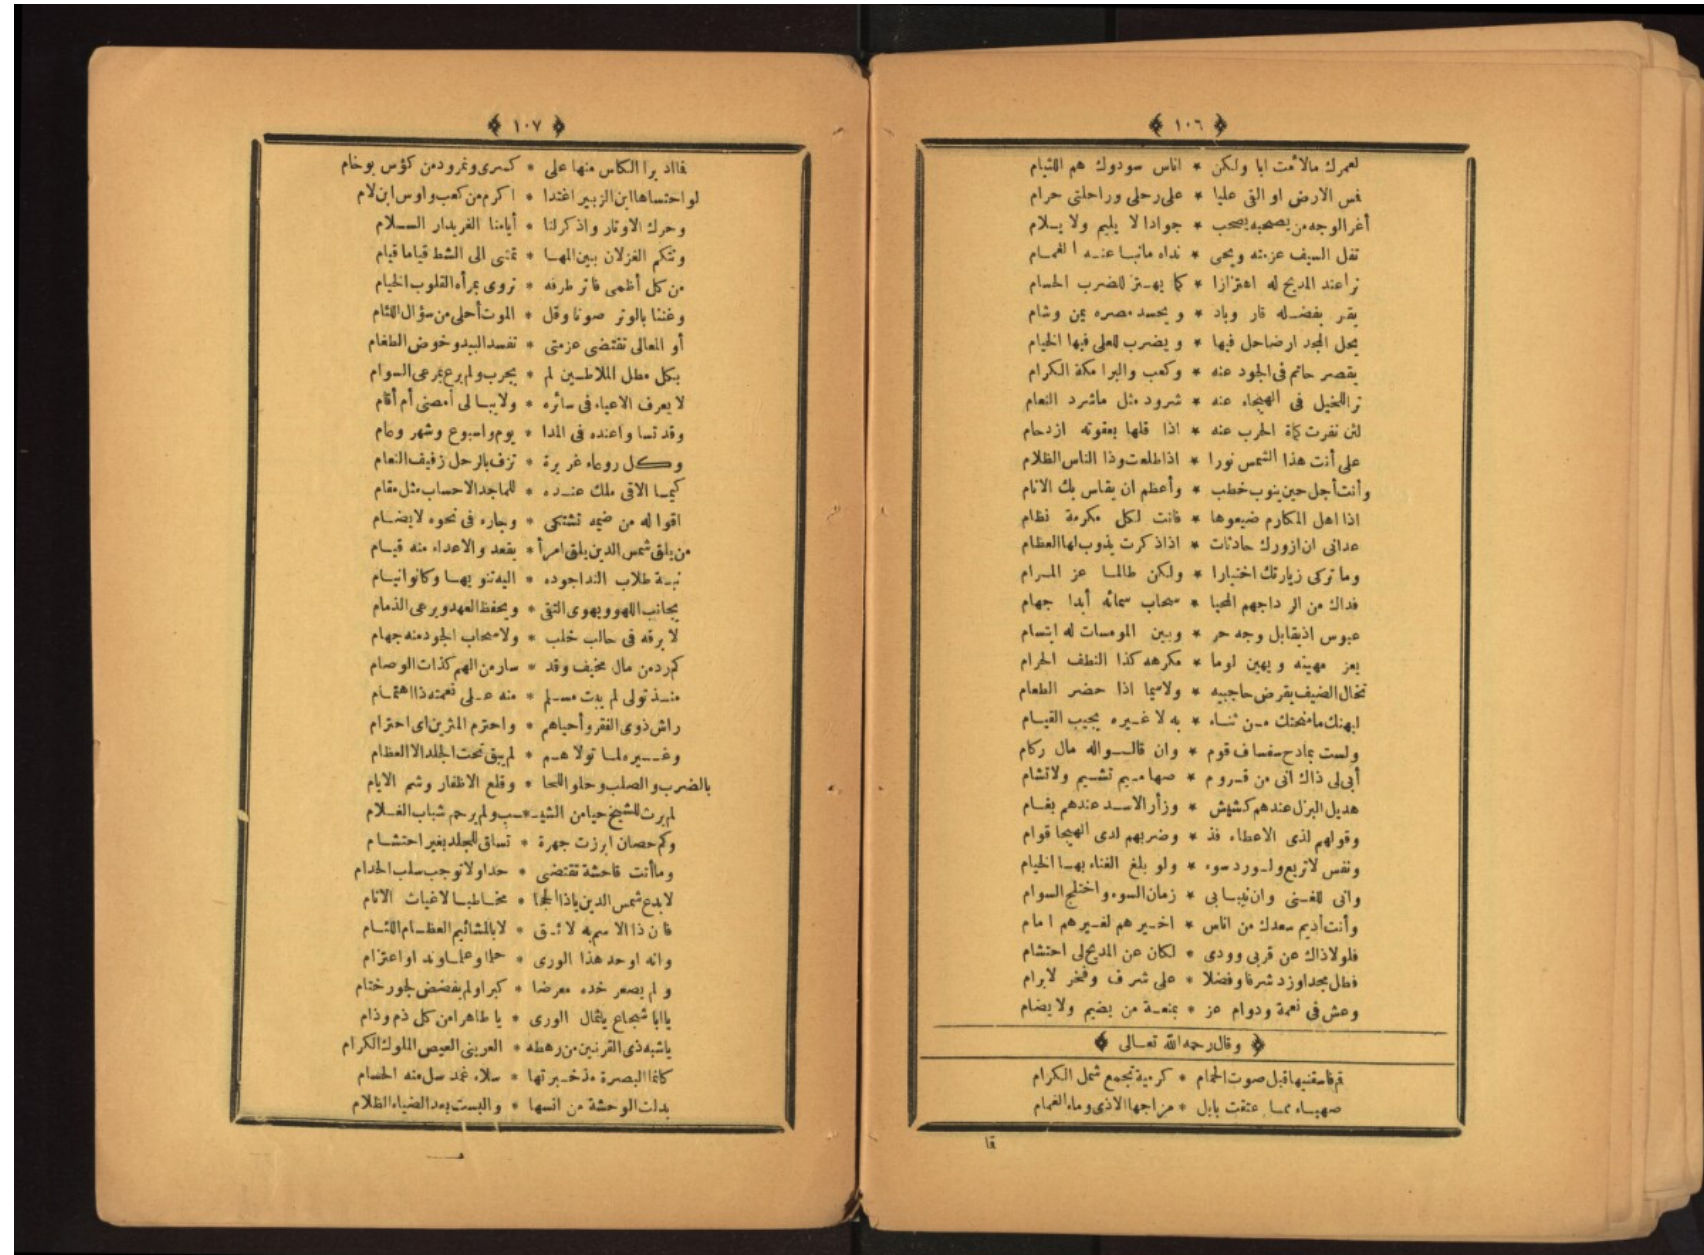 ﴿ ١٠٦ ﴾
لعمرك مالأمت ابا ولكن * اناس سودوك هم اللئام
فس الارض او التى عليا * على رحلى وراحلتى حرام
أغر الوجه من يصحبه يصحب * جوادا لا يليم ولا يسلام
تفل السيف عزمته ويحى * نداه مانبا عنه الغمام
تراعند المديح له اهتزازا * كما يهتز للضرب الحسام
يقر بفضله قار وباد * ويحسد مصره يمن وشام
يحل المجد ارضاحل فيها * ويضرب للعلى فيها الخيام
يقصر حاتم فى الجود عنه * وكعب والبرا مكة الكرام
تراللخيل فى الهيجاء عنه * شرود مثل ماشرد النعام
لئن نفرت كماة الحرب عنه * اذا قلها بعقوته ازدحام
على أنت هذا الشمس نورا * اذا طلعت وذا الناس الظلام
وأنت أجل حين ينوب خطب * وأعظم ان يقاس بك الانام
اذا اهل المكارم ضيعوها * فانت لكل مكرمة نظام
عدانى ان ازورك حادثات * اذا ذكرت يذوب لها العظام
وما تركى زيارتك اختيارا * ولكن طالما عز المرام
فداك من الر داجهم المحيا * سحاب سمائه أبدا جهام
عبوس اذ يقابل وجه حر * وبين المومسات له ابتسام
يعز مهينه ويهين لوما * مكرهه كذا النطف الحرام
تخال الضيف يقرض حاجبيه * ولاسيما اذا حضر الطعام
ليهنك مامنحتك من ثناء * به لا غيره يجيب القيام
ولست بمادح سفساف قوم * وان قالوا له مال ركام
أبى لى ذاك انى من قروم * صهاميم تشيم ولاتشام
هديل البزل عندهم كشيش * وزأر الاسد عندهم بغام
وقولهم لذى الاعطاء فذ * وضربهم لدى الهيجا قوام
ونفس لاتريع ولورد سوء * ولو بلغ الغناء بها الخيام
وانى للغنى وان نيبا بى * زمان السوء واختلج السوام
وأنت أديم سعدك من اناس * اخيرهم لغيرهم امام
فلولا ذاك عن قربى وودى * لكان عن المديح لى احتشام
فطل مجداوزد شرفا وفضلا * على شرف وفخر لا يرام
وعش فى نعمة ودوام عز * بمنعة من يضيم ولا يضام
﴿ وقال رحمه الله تعالى ﴾
قم فاسقنيها قبل صوت الحمام * كرمية تجمع شمل الكرام
صهباء مما عتقت بابل * مزاجها الاذى وماء الغمام
قا
﴿ ١٠٧ ﴾
فااد يرا الكاس منها على * كسرى ونمرود من كؤس بوخام
لو احتساها ابن الزبير اغتدا * اكرم من كعب واوس ابن لام
وحرك الاوتار واذكر لنا * أيامنا الغر بدار السلام
وتتكم الغزلان بين المها * تمشى الى الشط قياما قيام
من كل أظمى فاتر طرفه * تروى بمرآه القلوب الخيام
وغننا بالوتر صوتا وقل * الموت أحلى من سؤال اللئام
أو المعالى تقتضى عزمتى * تفسد البيد وخوض الطغام
بكل مطل الملاطين لم * يجرب ولم يرع بمرعى السوام
لا يعرف الاعياء فى سائره * ولا يبالى أمضى أم أقام
وقد تسا واعنده فى المدا * يوم واسبوع وشهر وعام
وكل روعاء غريرة * تزف بالرحل زفيف النعام
كيما الاقى ملك عنده * للماجد الاحساب مثل مقام
اقواله من ضيمه تشتكى * وجاره فى نحوه لايضام
من يلق شمس الدين يلق امرأ * يقعد والاعداء منه قيام
نبه طلاب الندا جوده * اليه تنو بها وكانوا نيام
يجانب اللهو ويهوى التقى * ويحفظ العهد ويرعى الذمام
لا برقه فى حالب خلب * ولا سحاب الجود منه جهام
كم رد من مال مخيف وقد * سار من الهم كذات الوصام
منذ تولى لم يبت مسلم * منه على نعمته ذا اهتمام
راش ذوى الفقر وأحياهم * واحترم المثرين اى احترام
وغيره لما تولاهم * لم يبق تحت الجلد الا العظام
بالضرب والصلب وحلو اللحا * وقلع الاظفار وشم الايام
لم يرث للشيخ حيا من الشيـ * ـب ولم يرحم شباب الغلام
وكم حصان ابرزت جهرة * تساق للمجلد بغير احتشام
وما أنت فاحشة تقتضى * حدا ولا توجب سلب الخدام
لا بدع شمس الدين ياذا الحجا * مخاطبا لاغياث الانام
فان ذا الاسم به لائق * لا بالمشائيم العظام اللئام
وانه اوحد هذا الورى * حلما وعلما وند او اعتزام
ولم يصعر خده معرضا * كبرا ولم يفضض لجور ختام
يا ابا شجاع يا ثمال الورى * يا طاهرا من كل ذم وذام
ياشبه ذى القرنين من رهطه * العربنى العيص الملوك الكرام
كانما البصرة مذخبرتها * سلاء غمد سل منه الحسام
بدلت الوحشة من انسها * والبست بعد الضياء الظلام